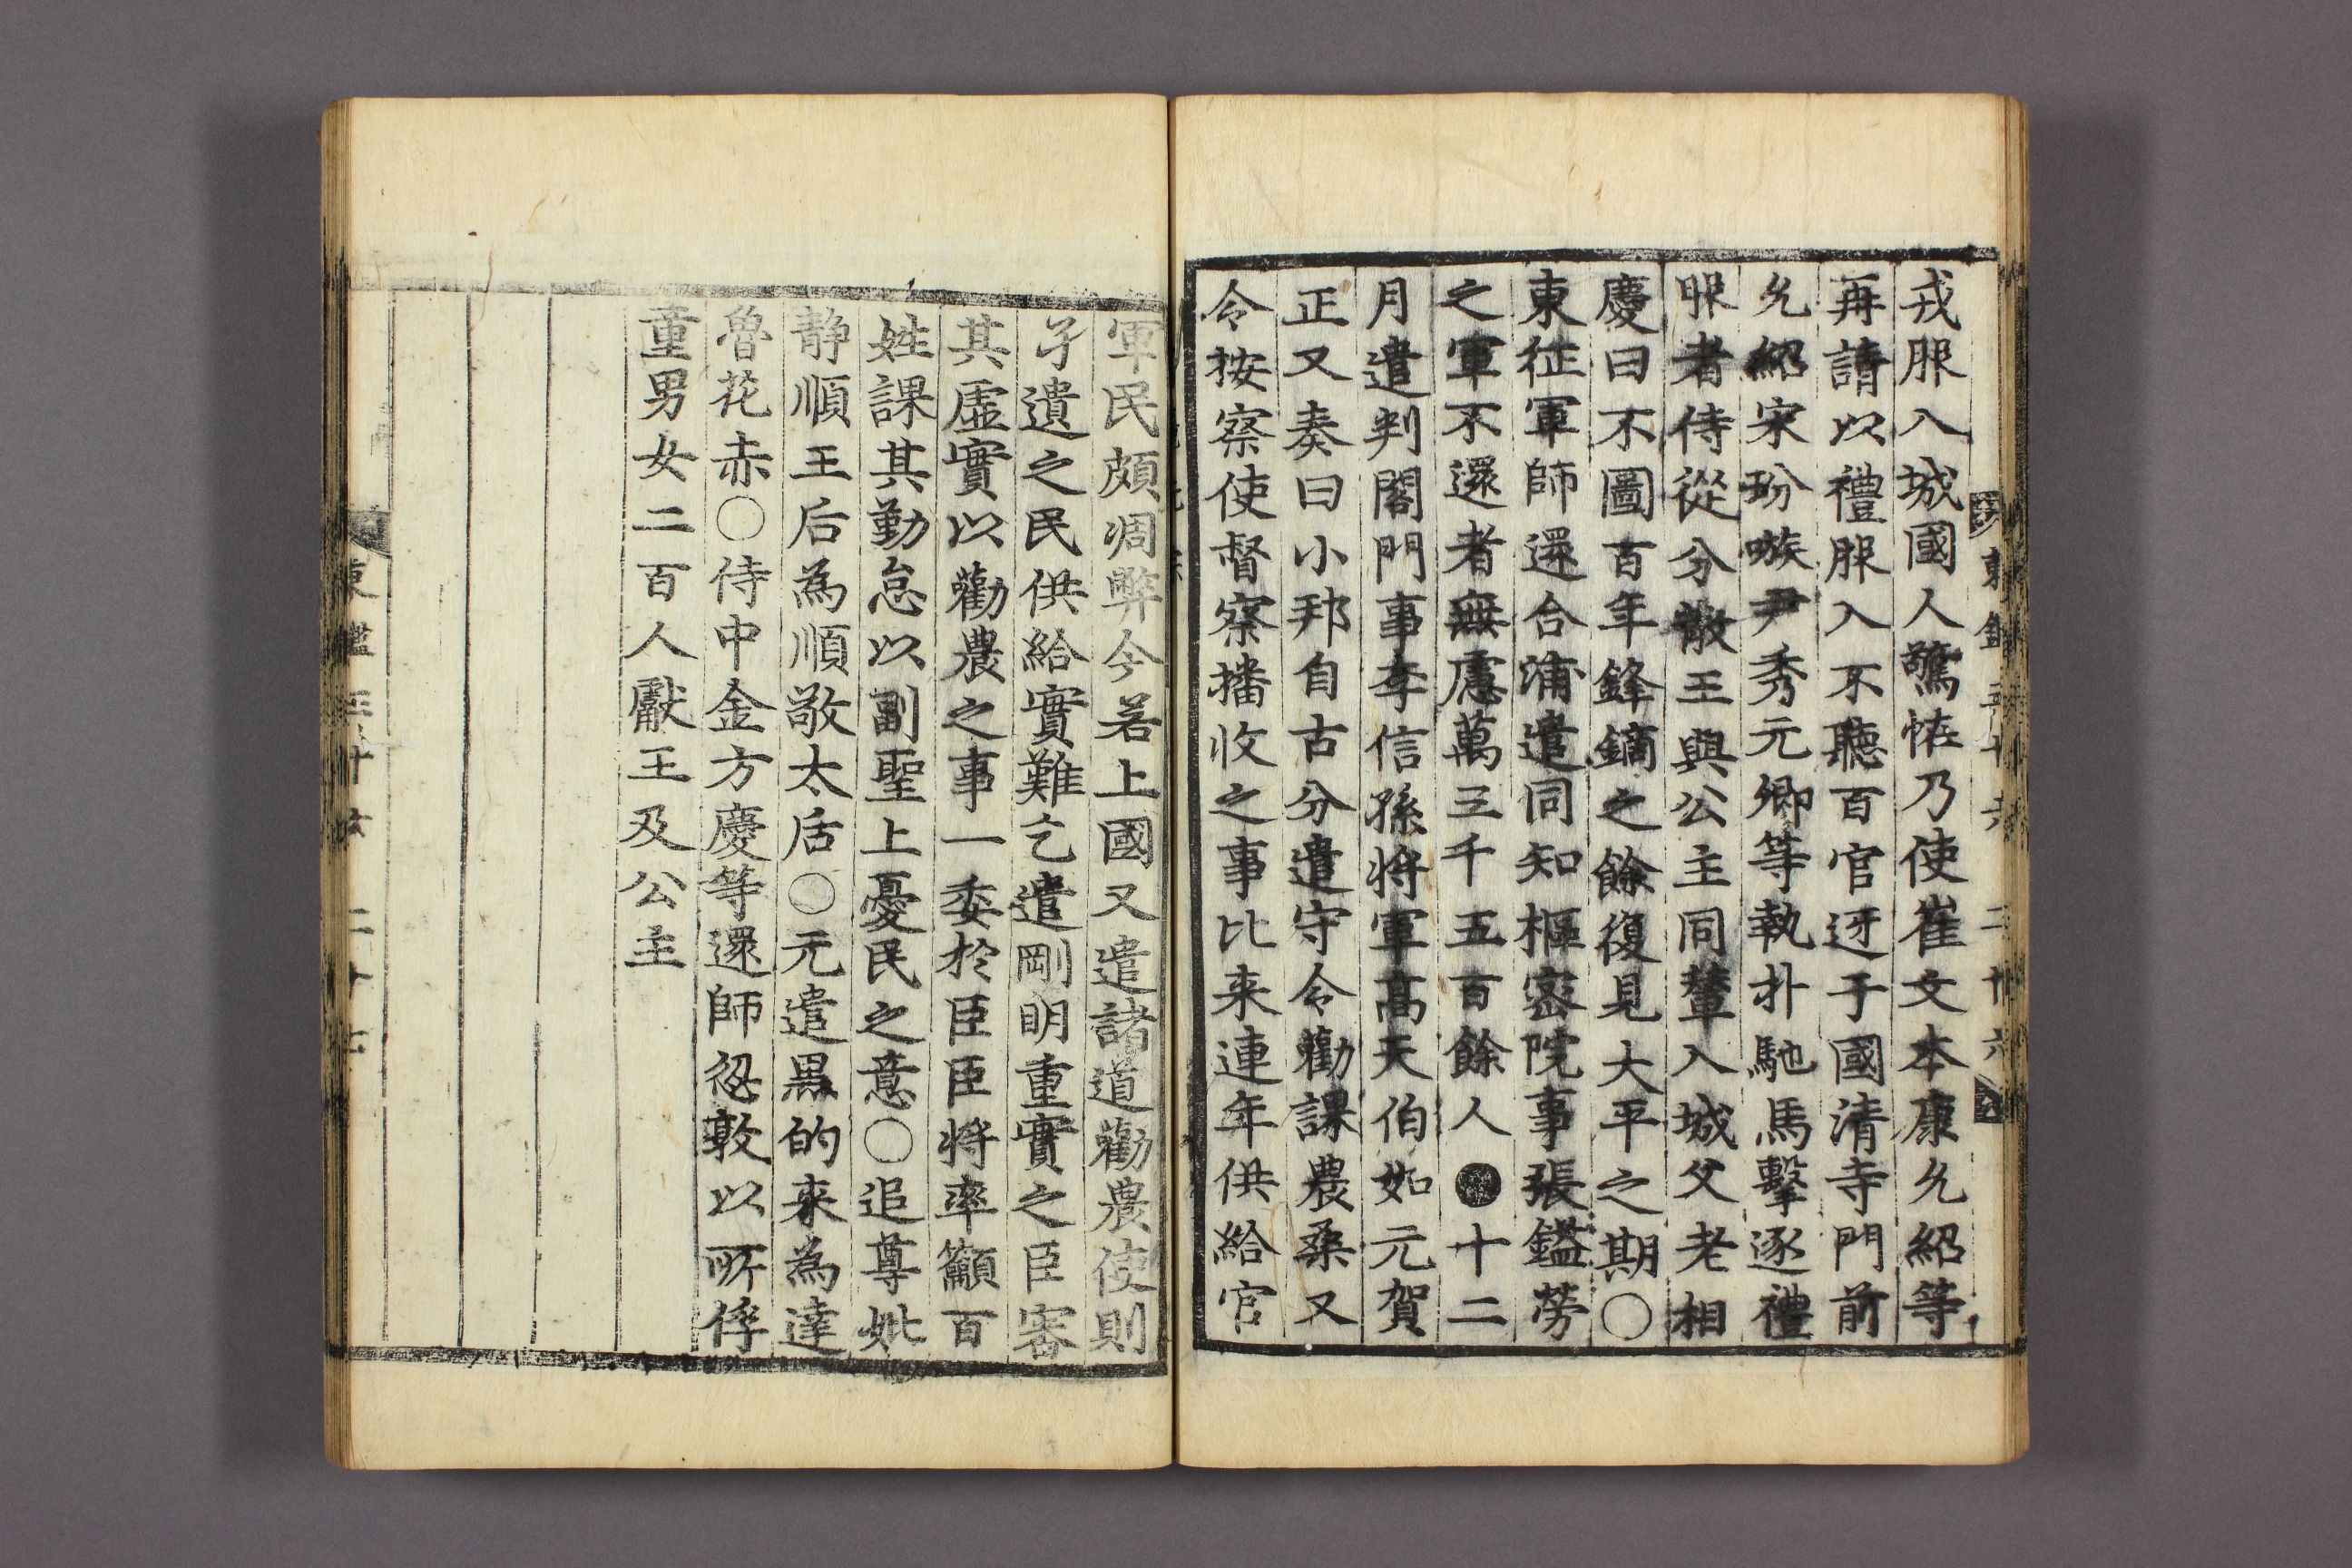 東鑑三十六 二十六
戎服入城國人驚恠乃使崔文本康允紹等
再請以禮服入不聽百官迓于國清寺門前
允紹宋玢嗾尹秀元卿等執扑馳馬擊逐禮
服者侍從分散王與公主同輦入城父老相
慶曰不圖百年鋒鏑之餘復見大平之期〇
東征軍師還合浦遣同知樞密院事張鎰勞
之軍不還者無慮萬三千五百餘人●十二
月遣判閣門事李信孫將軍高天伯如元賀
正又奏曰小邦自古分遣守令勸課農桑又
令按察使督察播收之事比来連年供給官
軍民頗凋弊今若上國又遣諸道勸農使則
孑遺之民供給實難乞遣剛明重實之臣審
其虛實以勸農之事一委於臣臣將率籲百
姓課其勤怠以副聖上憂民之意〇追尊妣
静順王后為順敬太后〇元遣黒的来為達
魯花赤〇侍中金方慶等還師忽敦以所俘
童男女二百人獻王及公主
東鑑三十六 二十七